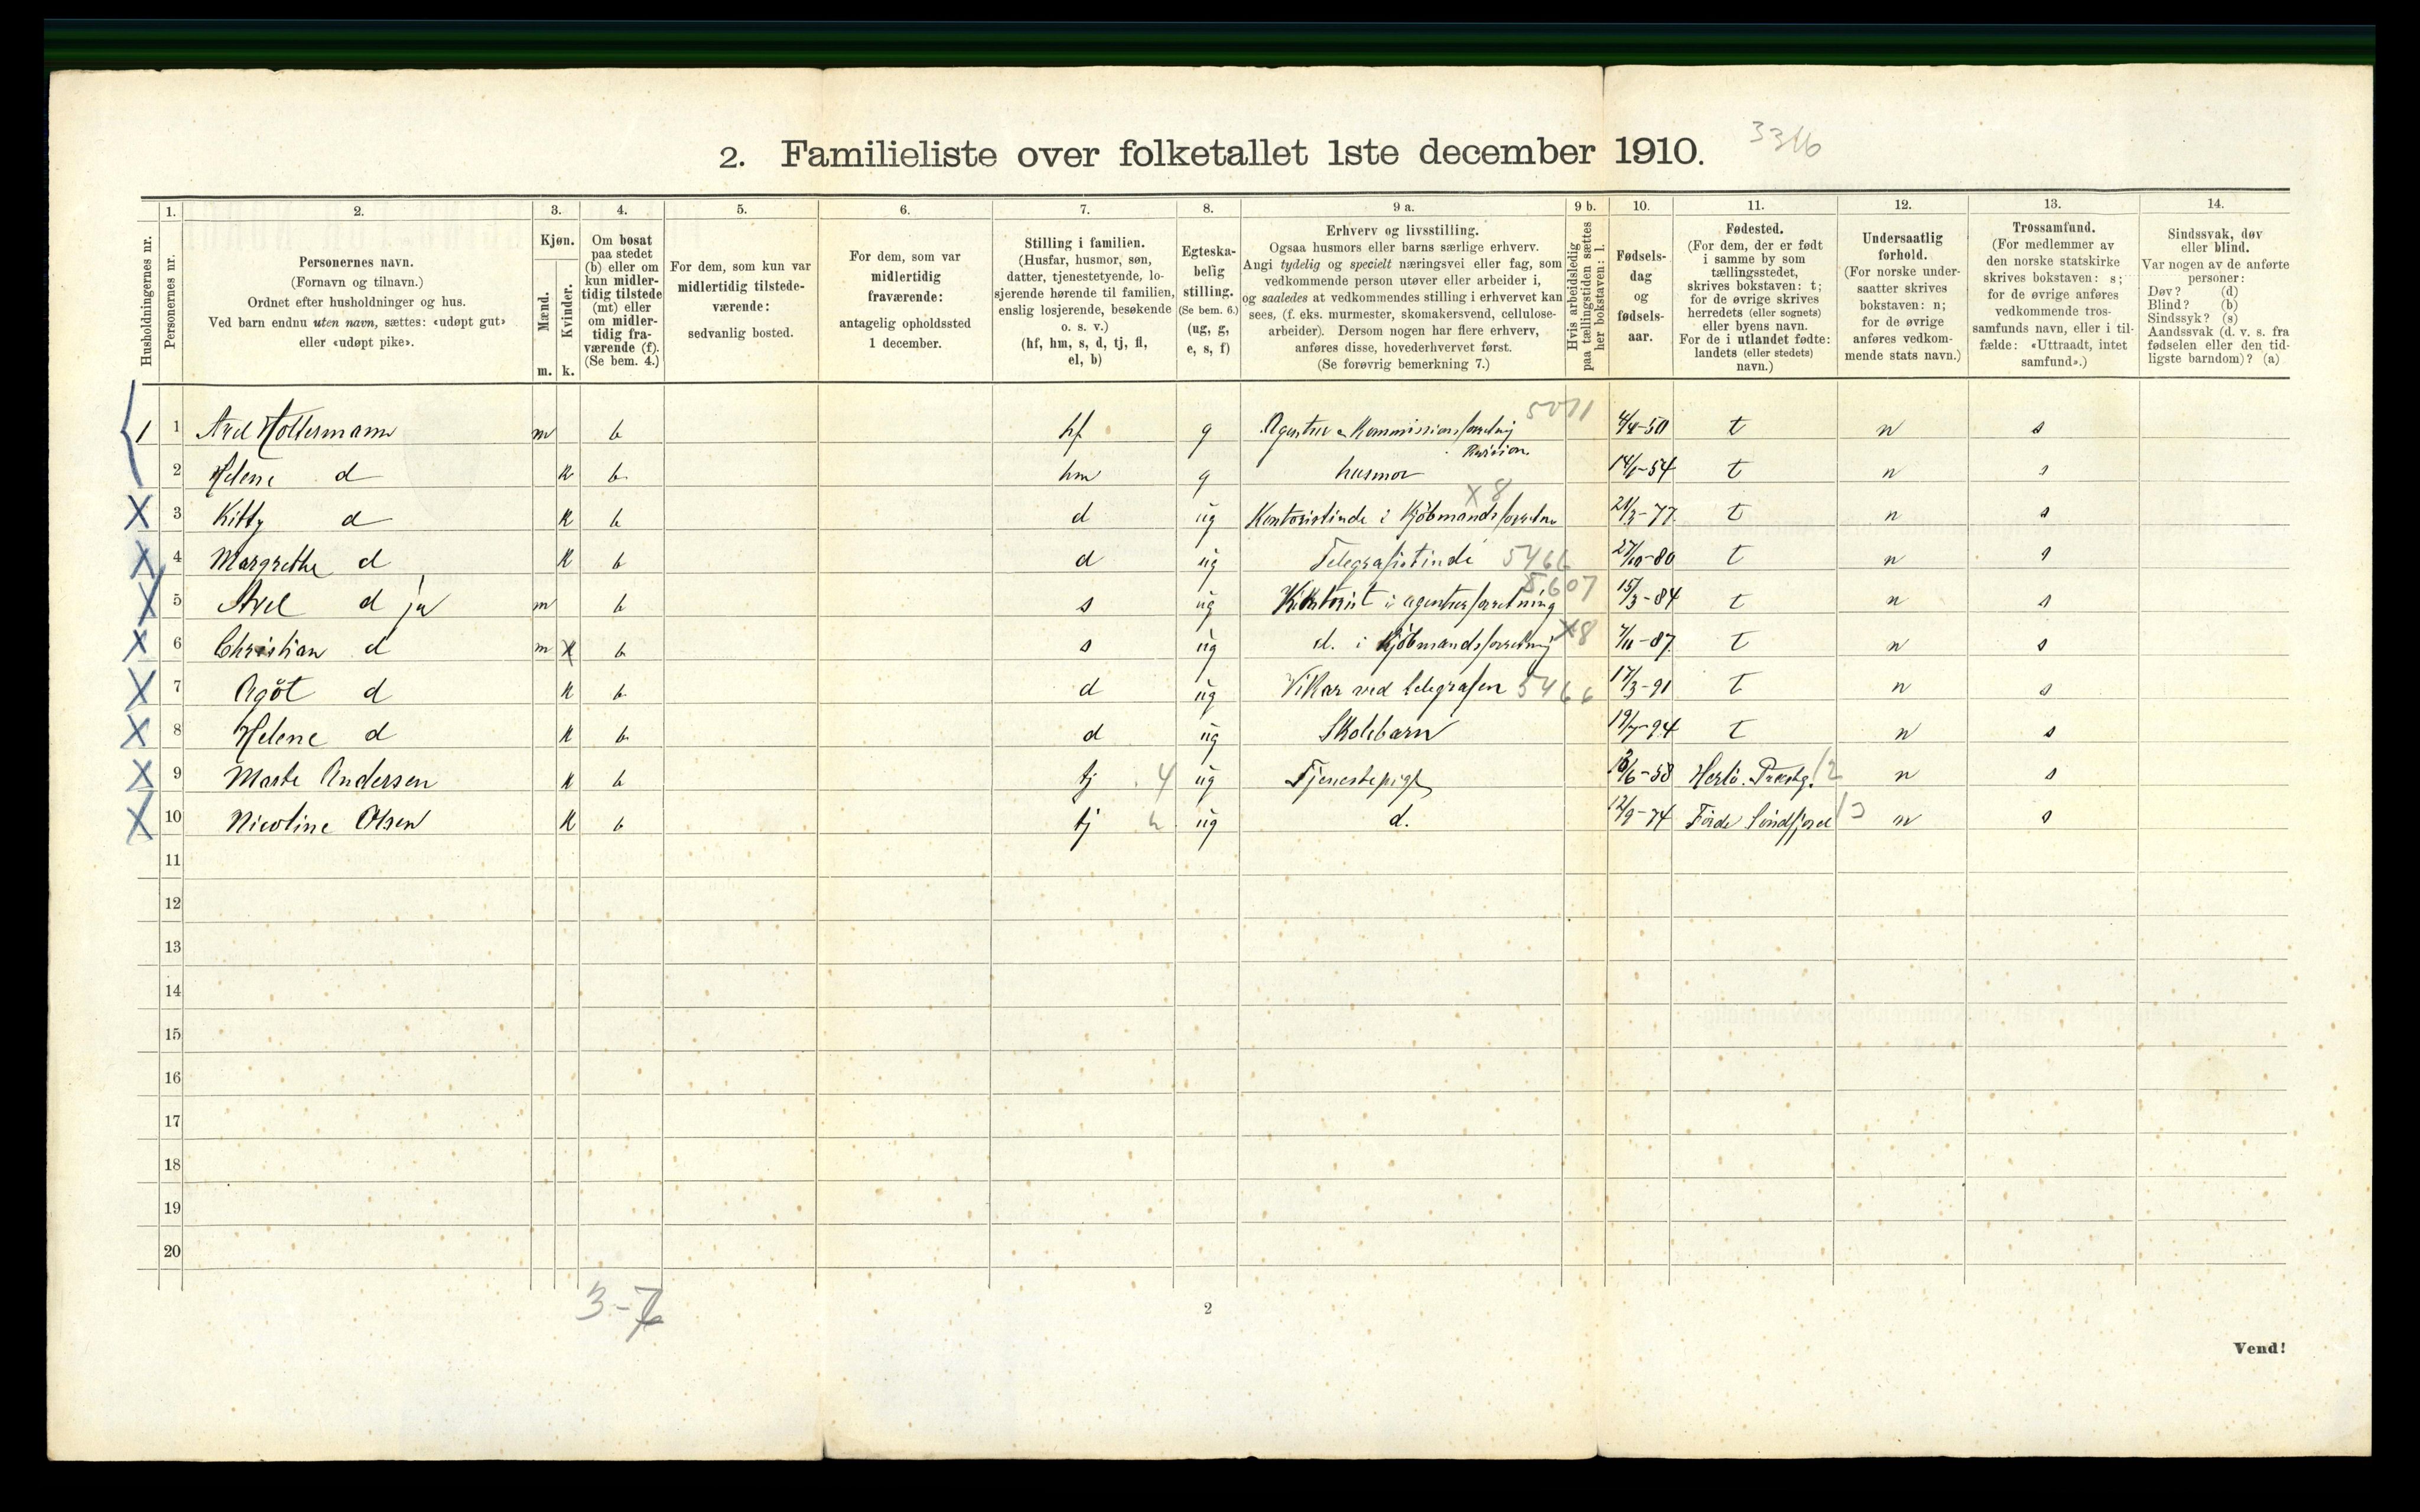 2. Familieliste over folketallet 1ste december 1910. 3316
1. 2. 3. 4. 5. 6. 7. 8. 9 a. 9 b. 10. 11. 12. 13. 14.
Husholdningernes nr.
Personernes nr.
Personernes navn.
(Fornavn og tilnavn.)
Ordnet efter husholdninger og hus.
Ved barn endnu uten navn, sættes: «udøpt gut»
eller «udøpt pike».
Kjøn.
Mænd.
Kvinder.
m. k.
Om bosat
paa stedet
(b) eller om
kun midler-
tidig tilstede
(mt) eller
om midler-
tidig fra-
værende (f).
(Se bem. 4.)
For dem, som kun var
midlertidig tilstede-
værende:
sedvanlig bosted.
For dem, som var
midlertidig
fraværende:
antagelig opholdssted
1 december.
Stilling i familien.
(Husfar, husmor, søn,
datter, tjenestetyende, lo-
sjerende hørende til familien,
enslig losjerende, besøkende
o. s. v.)
(hf, hm, s, d, tj, fl,
el, b)
Egteska-
belig
stilling.
(Se bem. 6.)
(ug, g,
e, s, f)
Erhverv og livsstilling.
Ogsaa husmors eller barns særlige erhverv.
Angi tydelig og specielt næringsvei eller fag, som
vedkommende person utøver eller arbeider i,
og saaledes at vedkommendes stilling i erhvervet kan
sees, (f. eks. murmester, skomakersvend, cellulose-
arbeider). Dersom nogen har flere erhverv,
anføres disse, hovederhvervet først.
(Se forøvrig bemerkning 7.)
Hvis arbeidsledig
paa tællingstiden sættes
her bokstaven: l.
Fødsels-
dag
og
fødsels-
aar.
Fødested.
(For dem, der er født
i samme by som
tællingsstedet,
skrives bokstaven: t;
for de øvrige skrives
herredets (eller sognets)
eller byens navn.
For de i utlandet fødte:
landets (eller stedets)
navn.)
Undersaatlig
forhold.
(For norske under-
saatter skrives
bokstaven: n;
for de øvrige
anføres vedkom-
mende stats navn.)
Trossamfund.
(For medlemmer av
den norske statskirke
skrives bokstaven: s;
for de øvrige anføres
vedkommende tros-
samfunds navn, eller i til-
fælde: «Uttraadt, intet
samfund».)
Sindssvak, døv
eller blind.
Var nogen av de anførte
personer:
Døv? (d)
Blind? (b)
Sindssyk? (s)
Aandssvak (d. v. s. fra
fødselen eller den tid-
ligste barndom)? (a)
1 1 Axel Holtermann m b hf g Agentur & Kommissionsforretning Revision 5071 4/4-50 t n s
2 Helene d k b hm g husmor 14/6-54 t n s
X 3 Kitty d k b d ug Kontoristinde i Kjöbmandsforretn X8 21/3-77 t n s
X 4 Margrethe d k b d ug Telegrafistinde 5466 27/10-80 t n s
X 5 Axel d jr m b s ug Kontorist i agenturforretning X607 15/3-84 t n s
X 6 Christian d m b s ug d. i Kjöbmandsforretning X8 7/11-87 t n s
X 7 Agöt d k b d ug Vikar ved telegrafen 5466 17/3-91 t n s
X 8 Helene d k b d ug Skolebarn 19/7-94 t n s
X 9 Marte Andersen k b tj 4 ug Tjenestepige 16/6-58 Herlö. Præstg. 12 n s
X 10 Nicoline Olsen k b tj ug d. 12/9-74 Förde Söndfjord 13 n s
11
12
13
14
15
16
17
18
19
20
3-7
2
Vend!